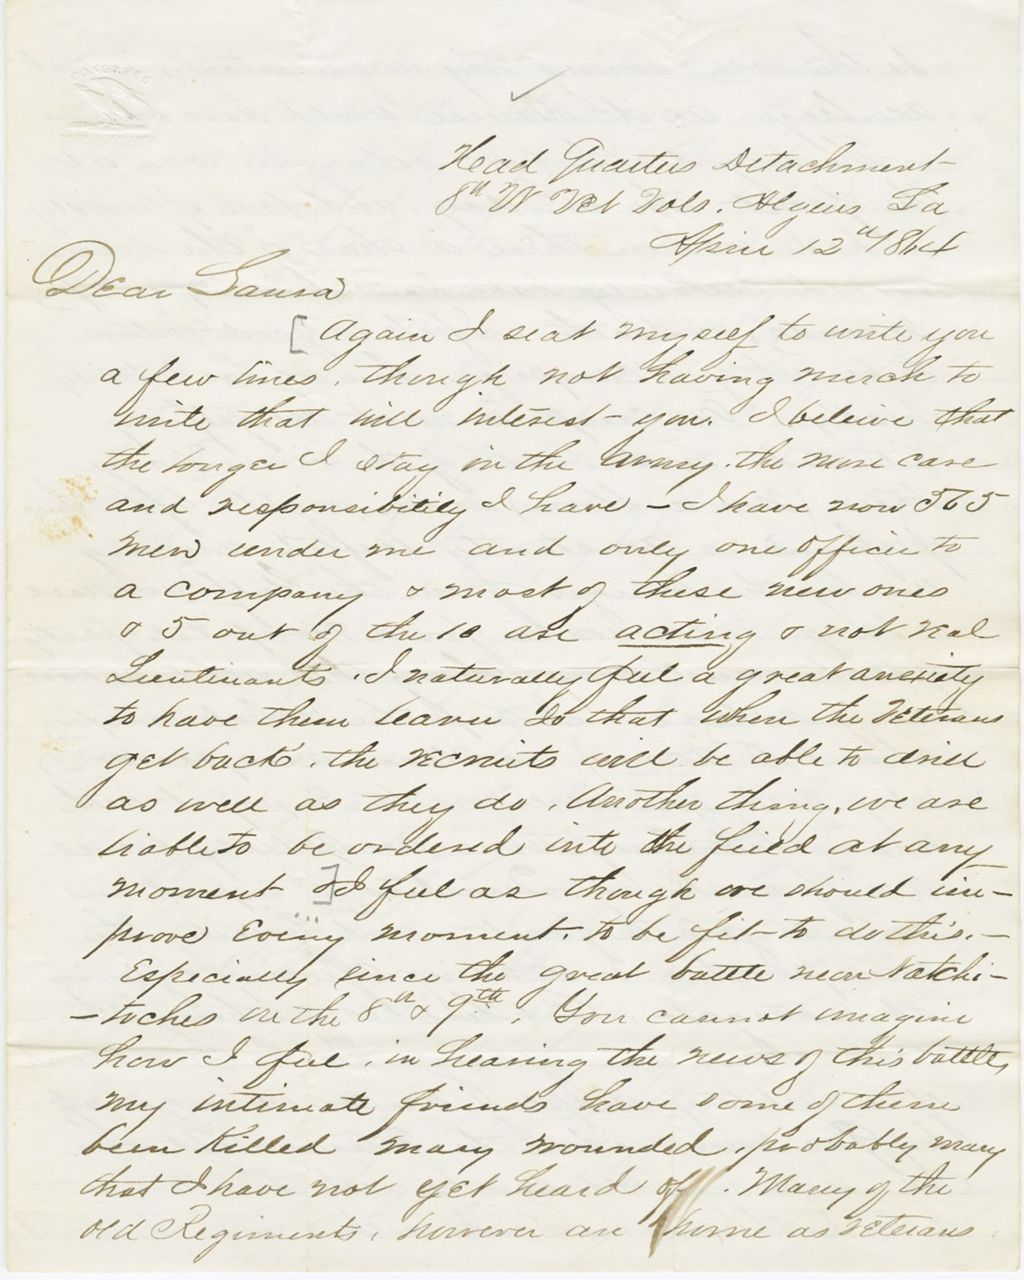 CONGRESS
Head Quarters Detachment
8th N Vet Vols. Algiers La
April 12th 1864
Dear Laura
[ Again I seat myself to write you
a few lines, though not having much to
write that will interest you. I believe that
the longer I stay in the army, the more care
and responsibility I have – I have now 565
men under me and only one officer to
a company & most of these new ones
& 5 out of the 10 are acting & not real
Lieutenants. I naturally feel a great anxiety
to have them learn so that when the Veterans
get back, the recruits will be able to drill
as well as they do. Another thing, we are
liable to be ordered into the field at any
moment ] & I feel as though we should im-
prove every moment, to be fit to do this. –
Especially since the great battle near Natchi-
-toches on the 8th & 9th. You cannot imagine
how I feel, in hearing the news of this battle,
my intimate friends have some of them
been killed many wounded, probably many
that I have not yet heard of. Many of the
old Regiments, however are home as veterans.